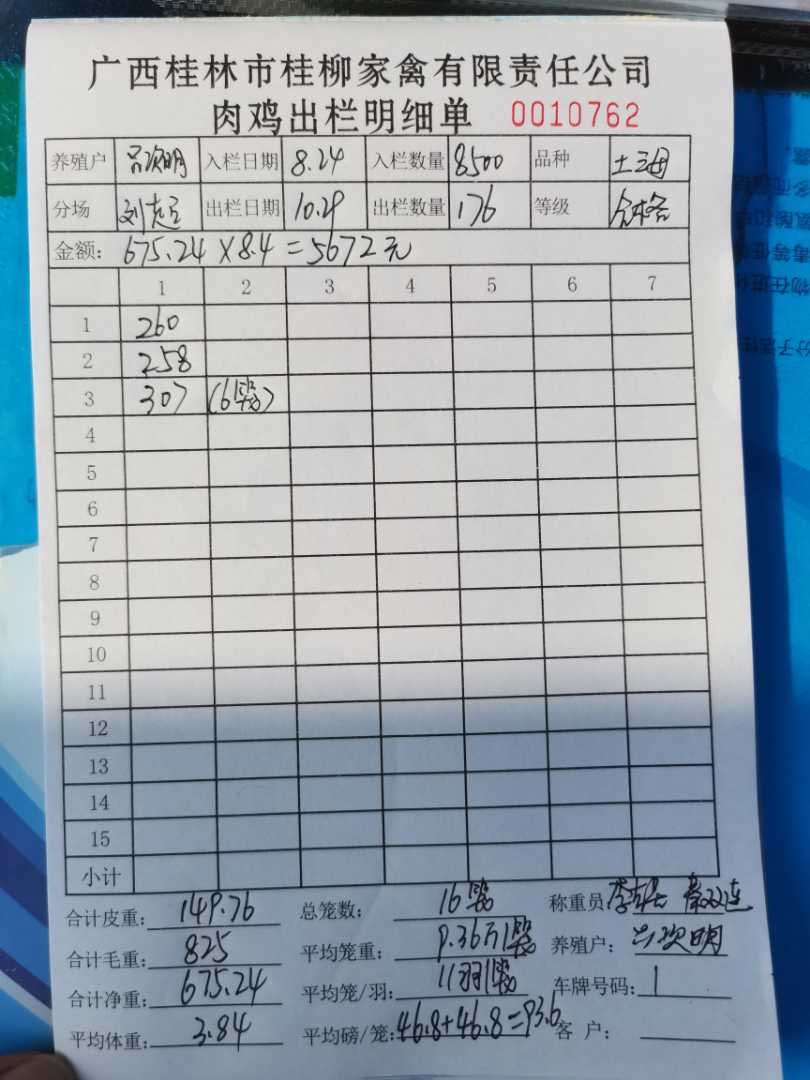 广西桂林市桂柳家禽有限责任公司
肉鸡出栏明细单 0010762
养殖户 吕次明 入栏日期 8.24 入栏数量 8500 品种 土三母
分场 刘 出栏日期 10.29 出栏数量 176 等级 合格
金额: 675.24×8.4=5672元
1 2 3 4 5 6 7
1 260
2 258
3 307 (6笼)
4
5
6
7
8
9
10
11
12
13
14
15
小计
合计皮重: 149.76 总笼数: 16笼 称重员 李
合计毛重: 825 平均笼重: 9.36斤/笼 养殖户: 吕次明
合计净重: 675.24 平均笼/羽: 11羽/笼 车牌号码: 1
平均体重: 3.84 平均磅/笼: 46.8+46.8=93.6 客 户: